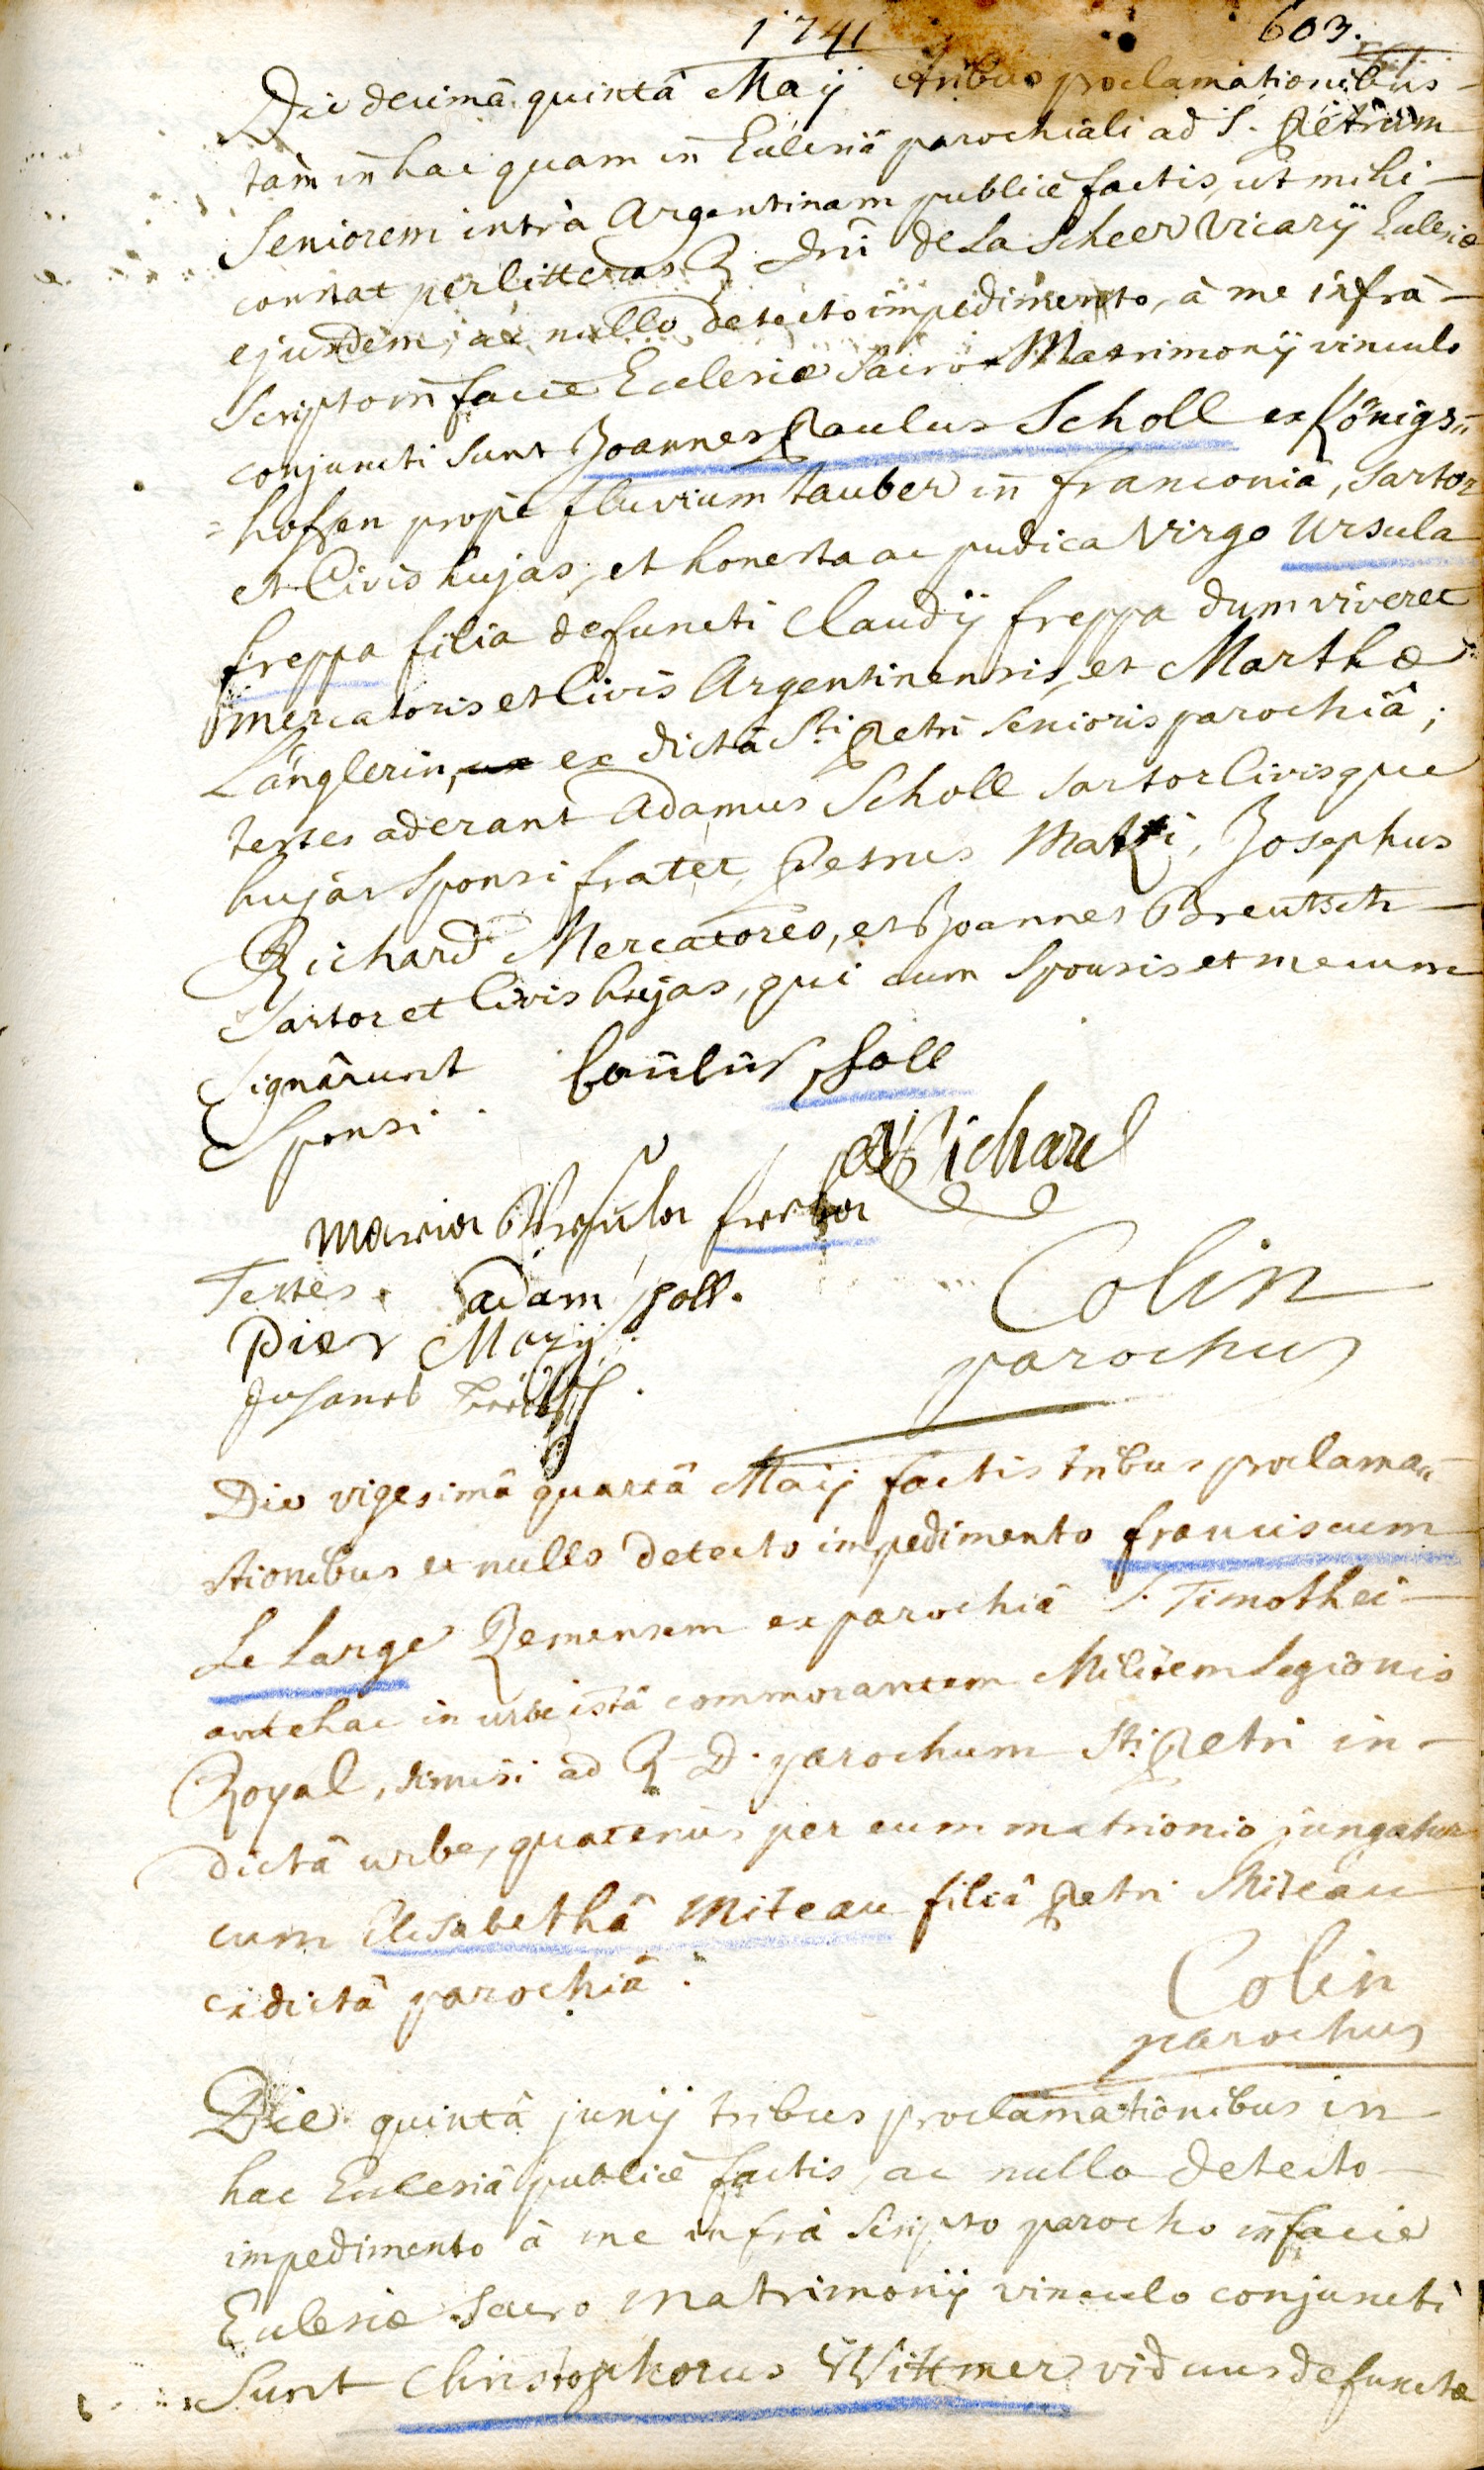 1741 603.
Die decimâ quintâ Maij tribus proclamationibus
tam in hac quam in Ecclesiâ parochiali ad S. Petrum
Seniorem intrà Argentinam publicè factis, ut mihi
constat per litteras R. Dni De La Scheer Vicarij Ecclesiæ
ejusdem, ac nullo detecto impedimento, à me infrà
Scripto in facie Ecclesiæ Sacro Matrimonij vinculo
conjuncti sunt Joannes Paulus Scholl ex Königs=
=hoffen propè fluvium tauber in franconiâ, sartor
et Civis hujas, et honesta ac pudica Virgo Ursula
freppa filia defuncti Claudij freppa dum viveret
mercatoris et Civis Argentinensis, et Marthæ
Länglerin, ex dictâ Sti Petri Senioris parochiâ;
testes aderant Adamus Scholl sartor Civisque
hujas Sponsi frater, Petrus Matzi, Josephus
Richard Mercatores, et Joannes Breutsch
Sartor et Civis hujas, qui cum Sponsis et mecum
Signârunt baulus soll
Sponsi
Richard
Maria Ursula
Testes. adam soll.
Colin
Pier Mazij
parochus
Die vigesimâ quartâ Maij factis tribus proclama=
tionibus et nullo detecto impedimento franciscum
Le Large Remensem ex parochiâ S. Timothei
antehac in urbe istâ commorantem Militem Legionis
Royal, dimisi ad R. D. parochum Sti Petri in
dictâ urbe, quatenùs per eum matrionio jungatur
cum Elisabethâ Miteau filiâ Petri Miteau
è dictâ parochiâ.
Colin
parochus
Die quintâ junij tribus proclamationibus in
hac Ecclesiâ publicè factis, ac nullo detecto
impedimento à me infrà Scripto parocho in facie
Ecclesiæ Sacro matrimonij vinculo conjuncti
Sunt Christophorus Wittmer viduus defunctæ